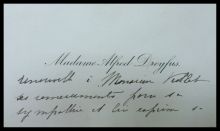 Madame Alfred Dreyfus
renouvelle à Monsieur
ses remerciements pour sa
sympathie et lui exprime s